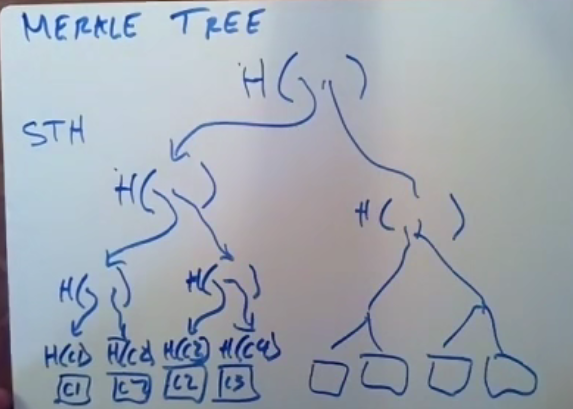 MERKLE TREE
H( , )
STH
H( , )
H( , )
H( , ) H( , )
H(C1) H(C2) H(C3) H(C4)
C1 C2 C3